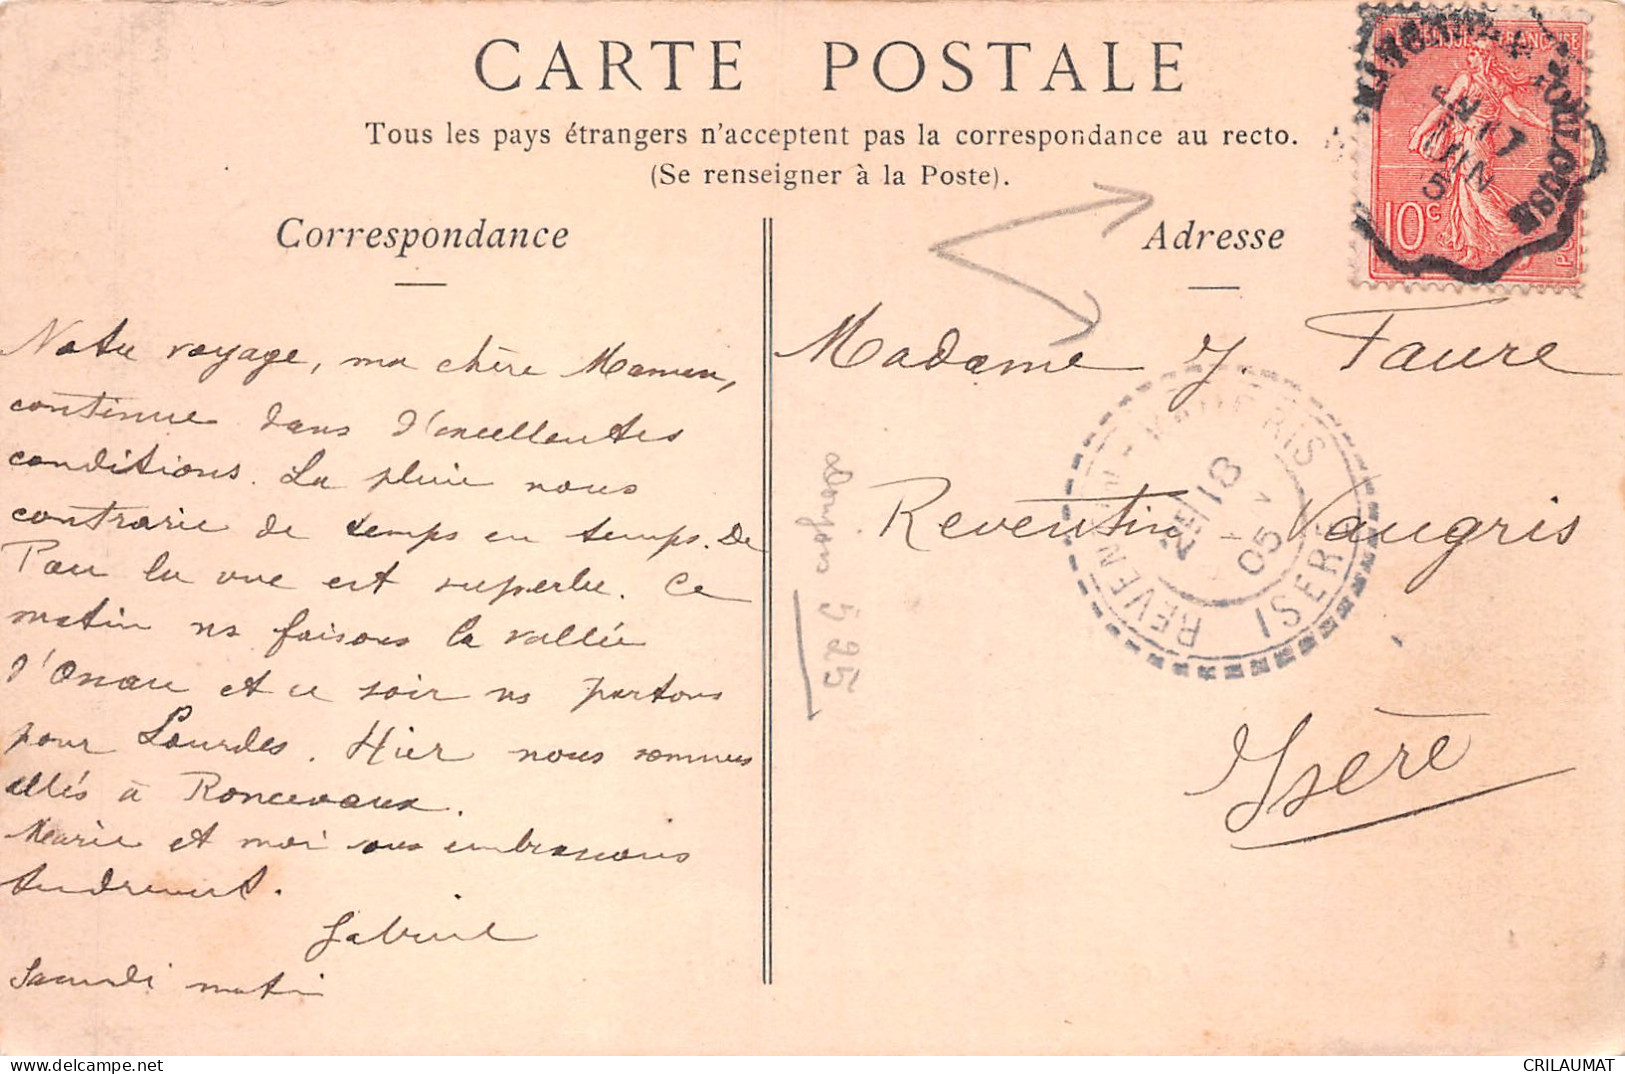 CARTE POSTALE
Tous les pays étrangers n'acceptent pas la correspondance au recto.
(Se renseigner à la Poste).
Correspondance
Notre voyage, ma chère Maman,
continue dans d'excellentes
conditions. La pluie nous
contrarie de temps en temps. De
Pau la vue est superbe. Ce
matin ns faisons la vallée
d'Ossau et ce soir ns partons
pour Lourdes. Hier nous sommes
allés à Roncevaux.
Marie et moi vous embrassons
tendrement.
Gabriel
Samedi matin
Adresse
Madame J. Faure
Reventin-Vaugris
Isère
525
RÉPUBLIQUE FRANÇAISE
10c
TOULOUSE
17
JUIN
05
REVENTIN-VAUGRIS
18
05
ISERE
CRILAUMAT